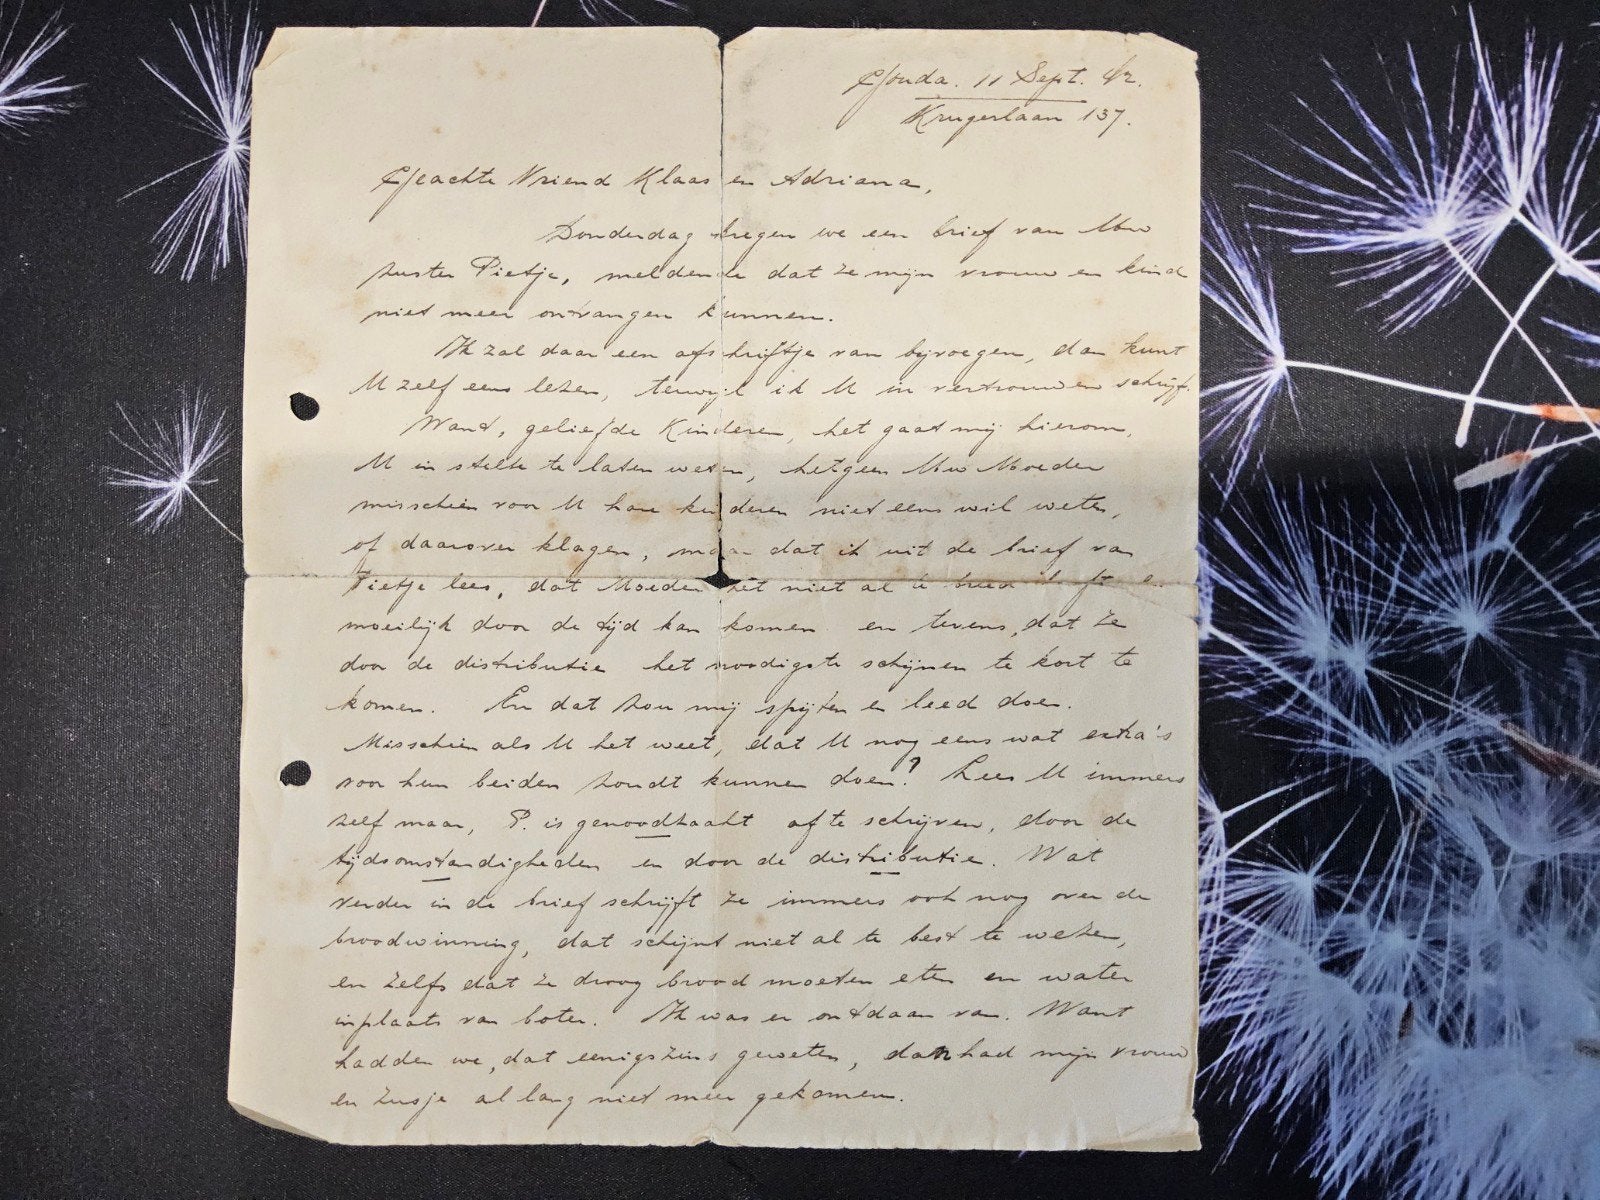 Gouda. 11 Sept. 42.
Krugerlaan 137.
Geachte Vriend Klaas en Adriana,
Donderdag kregen we een brief van Uw
zuster Pietje, meldende dat ze mijn vrouw en kind
niet meer ontvangen kunnen.
Ik zal daar een afschriftje van bijvoegen, dan kunt
U zelf eens lezen, terwijl ik U in vertrouwen schrijf.
Want, geliefde Kinderen, het gaat mij hierom,
U in stilte te laten weten, hetgeen Uw Moeder
misschien voor U hare kinderen niet eens wil weten,
of daarover klagen, maar dat ik uit de brief van
Pietje lees, dat Moeder het niet al te breed heeft en
moeilijk door de tijd kan komen en tevens, dat ze
door de distributie het noodigste schijnen te kort te
komen. En dat zou mij spijten en leed doen.
Misschien als U het weet, dat U nog eens wat extra's
voor hun beiden zoudt kunnen doen? Lees U immers
zelf maar, P. is genoodzaakt af te schrijven, door de
tijdsomstandigheden en door de distributie. Wat
verder in de brief schrijft ze immers ook nog over de
broodwinning, dat schijnt niet al te best te wezen,
en zelfs dat ze droog brood moeten eten en water
inplaats van boter. Ik was er ontdaan van. Want
hadden we, dat eenigszins geweten, dan had mijn vrouw
en Zusje al lang niet meer gekomen.